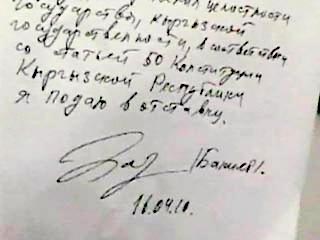 целостности
государства, кыргызской
государственности, в соответствии
со статьей 50 Конституции
Кыргызской Республики
я подаю в отставку.
/Бакиев/.
16.04.10.